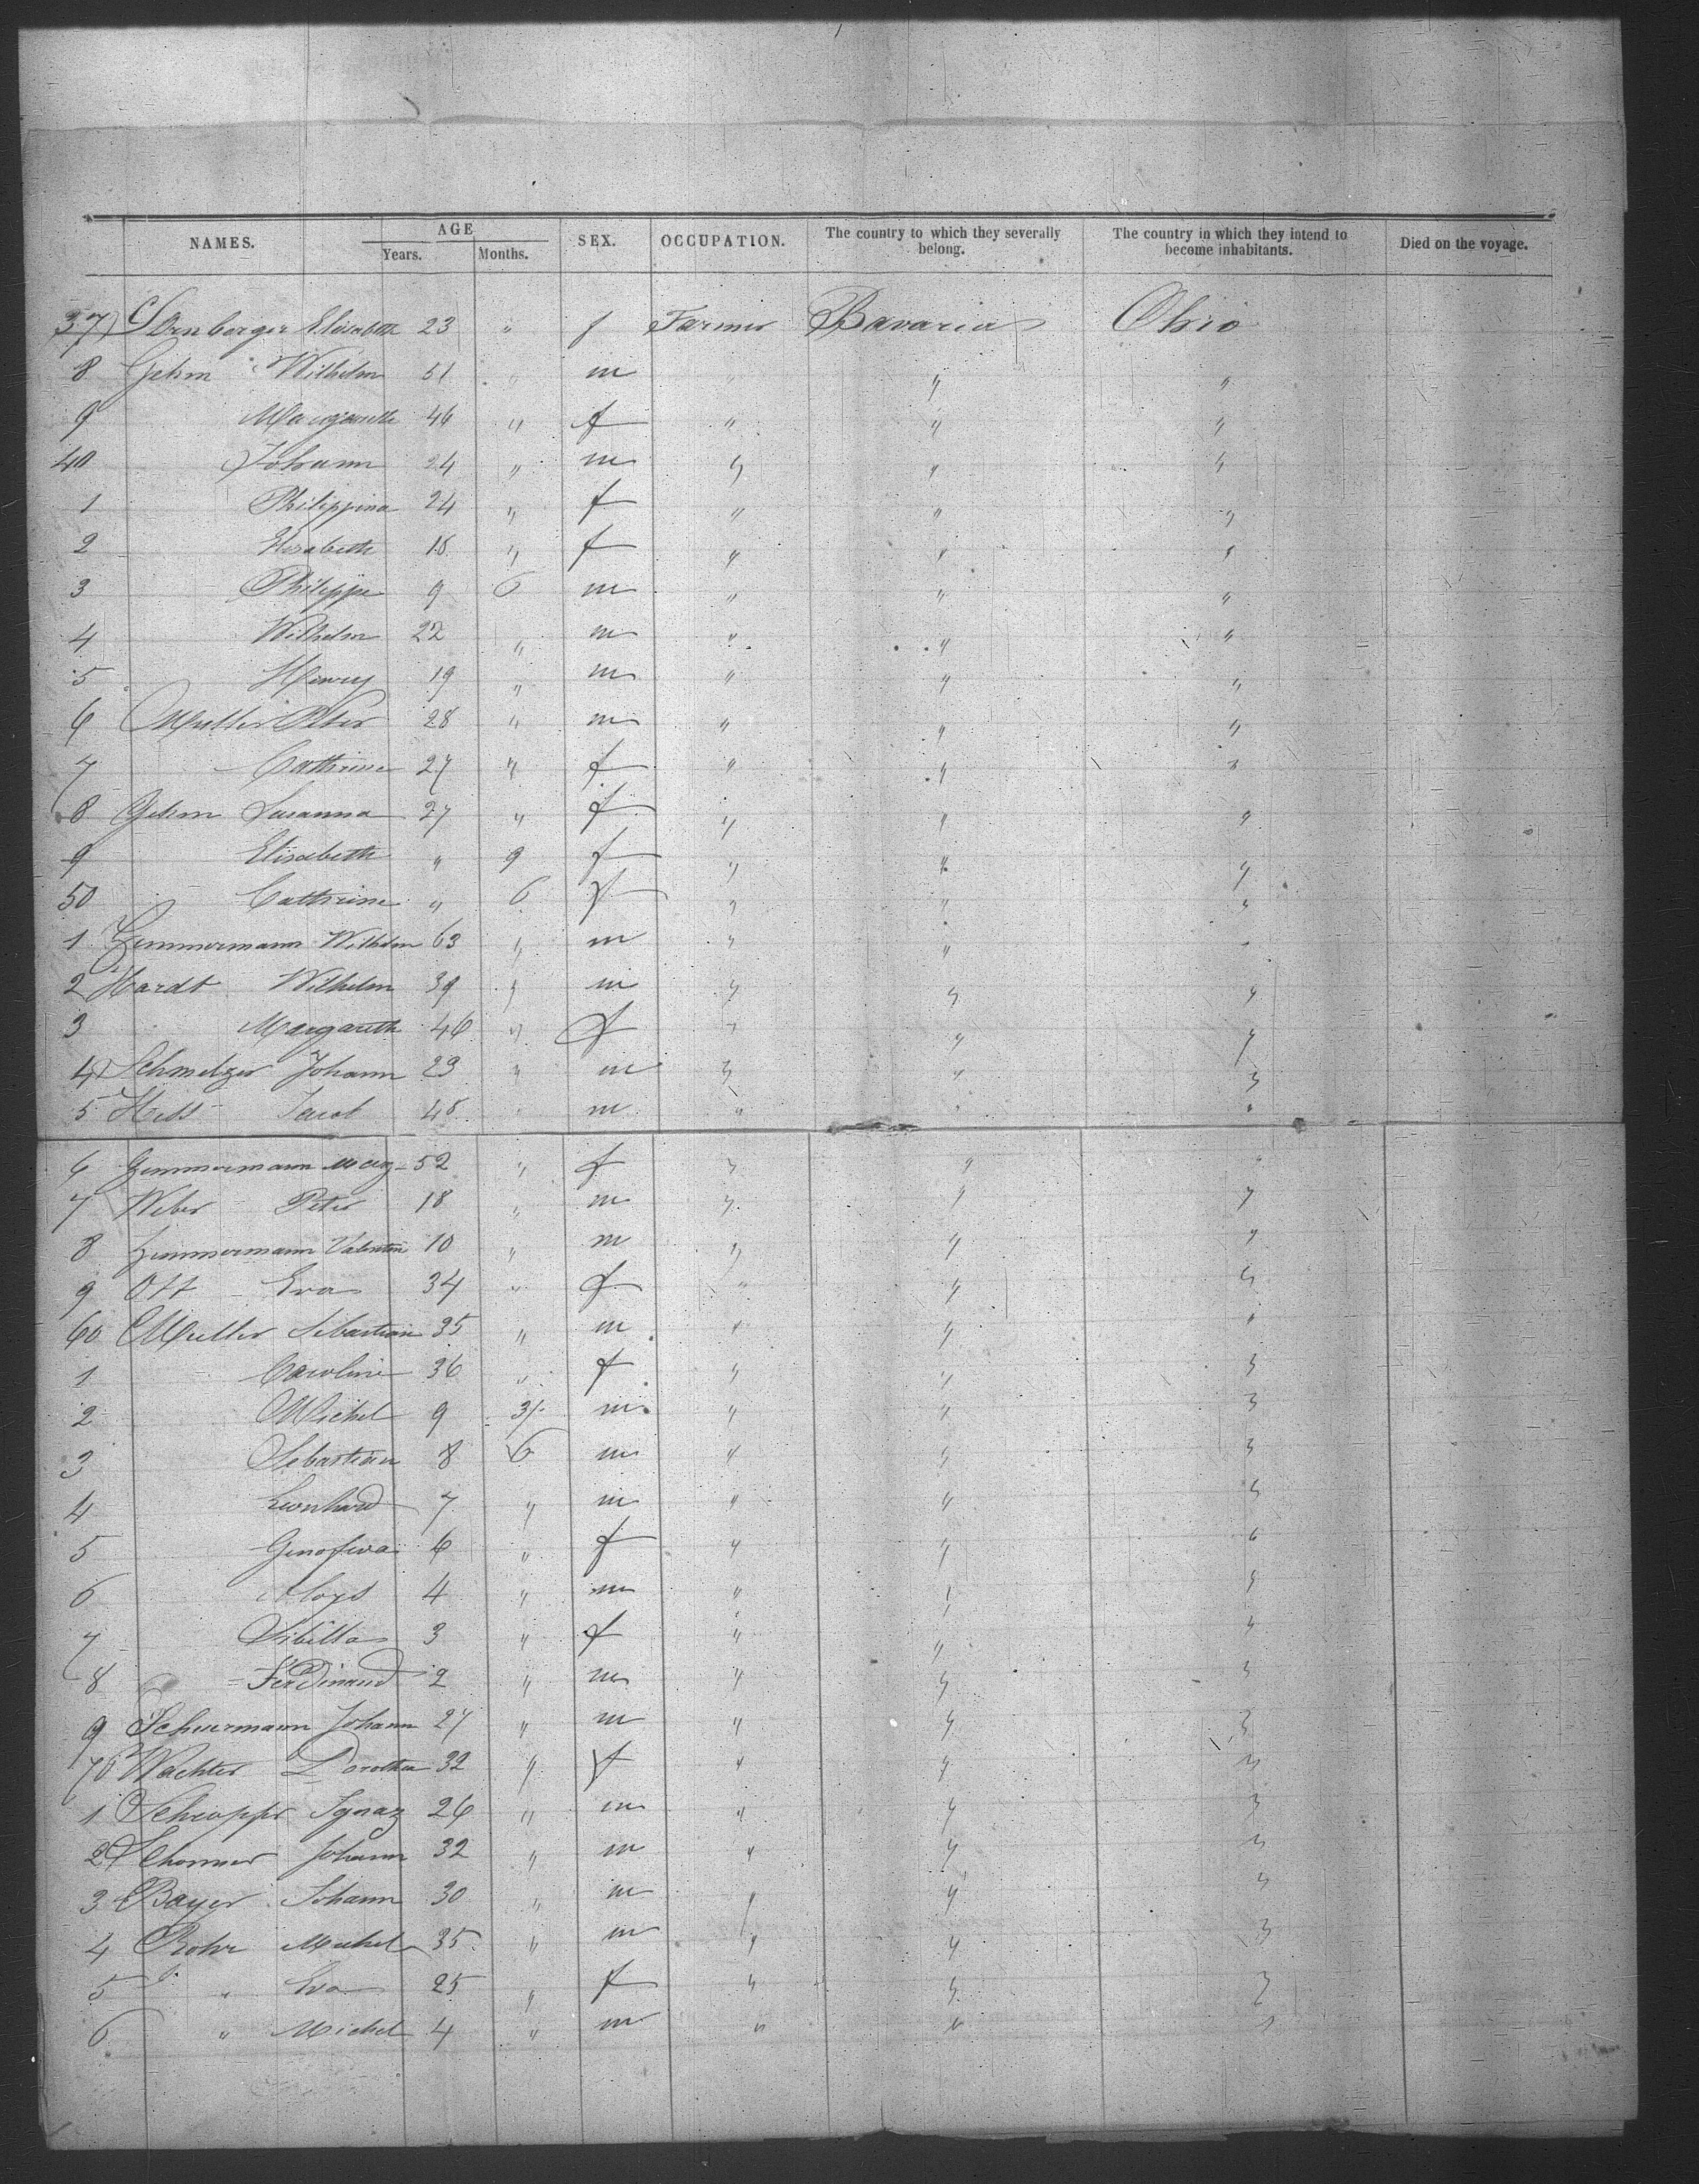 NAMES. AGE Years. Months. SEX. OCCUPATION. The country to which they severally belong. The country in which they intend to become inhabitants. Died on the voyage.
37 Elisabeth 23 " f Farmer Bavaria Ohio
8 Gehm Wilhelm 51 " m " " "
9 Margareth 46 " f " " "
40 Johann 24 " m " " "
1 Philippina 24 " f " " "
2 Elisabeth 18 " f " " "
3 Philippe 9 6 m " " "
4 Wilhelm 22 " m " " "
5 Henry 19 " m " " "
6 Muller Peter 28 " m " " "
7 Cathrine 27 " f " " "
8 Gehm Susanna 27 " f " " "
9 Elisabeth " 9 f " " "
50 Cathrine " 6 f " " "
1 Zimmermann Wilhelm 63 " m " " "
2 Hardt Wilhelm 39 " m " " "
3 Margareth 46 " f " " "
4 Schmelzer Johann 23 " m " " "
5 Hess Jacob 48 " m " " "
6 Zimmermann Marg 52 " f " " "
7 Weber Peter 18 " m " " "
8 Zimmermann Valentin 10 " m " " "
9 Ott Eva 34 " f " " "
60 Muller Sebastian 35 " m " " "
1 Caroline 36 " f " " "
2 Michel 9 3 m " " "
3 Sebastian 8 6 m " " "
4 Leonhard 7 " m " " "
5 Genofeva 6 " f " " "
6 Aloys 4 " m " " "
7 Sibilla 3 " f " " "
8 Ferdinand 2 " m " " "
9 Schuermann Johann 27 " m " " "
70 Wachter Dorothea 32 " f " " "
1 Ignaz 26 " m " " "
2 Johann 32 " m " " "
3 Bayer Johann 30 " m " " "
4 Rohr Michel 35 " m " " "
5 " Eva 25 " f " " "
6 " Michel 4 " m " " "